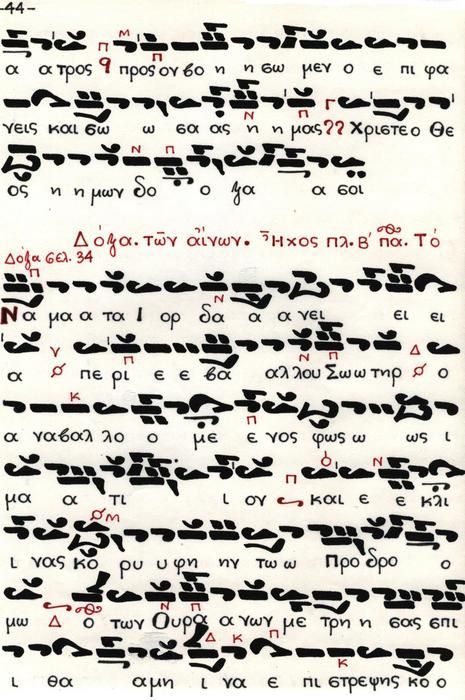 -44-
α ατρος προς ον βο η η σω μεν ο ε πι φα
νεις και σω ω σα ας η η μας Χριστε ο Θε
ος η η μων δο ο ξα α σοι
Δόξα. τῶν αἴνων. Ἦχος πλ. Β΄ πα. Το
Δόξα σελ. 34
Να μα α τα Ι ορ δα α α νει ει ει
α πε ρι ε ε βα αλ λου Σωω τηρ ο
α ναβαλ λο ο με ε νος φως ω ως ι
μα α τι ι ον και ε ε κλι
ι νας κο ρυ υ φη ην τω ω Προ δρο ο
μω ο των Ουρα α νων με τρη η σας σπι
ι θα α μη ι να ε πι στρεψης κο ο